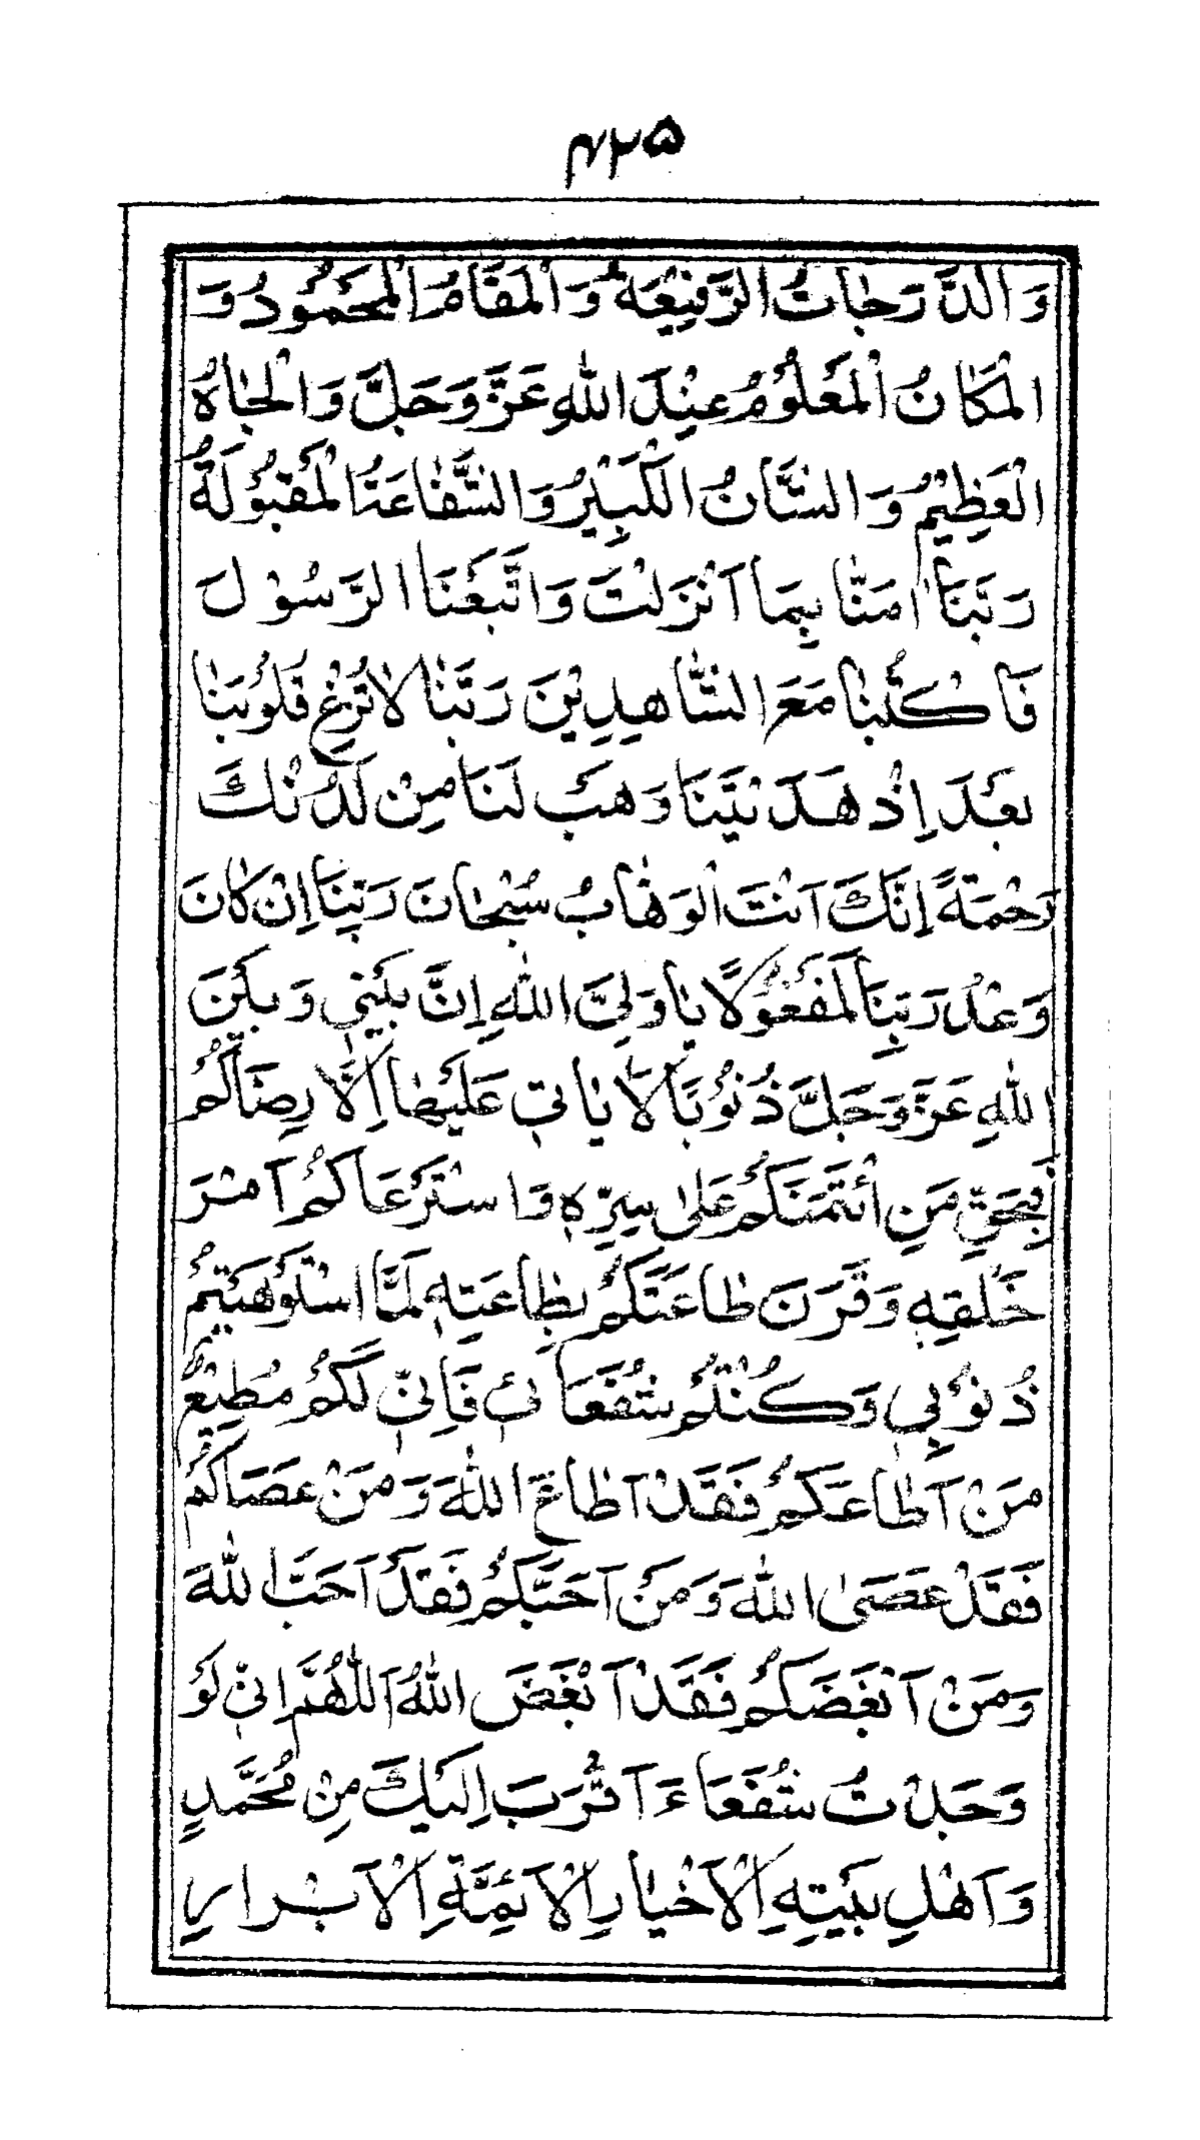 ۴۲۵
وَ الدَّرَجاتُ الرَّفِيْعَةُ وَ الْمَقامُ الْمَحْمُوْدُ وَ
الْمَكانُ الْمَعْلُوْمُ عِنْدَ اللهِ عَزَّ وَجَلَّ وَ الْجاهُ
الْعَظِيْمُ وَ الشَّانُ الْكَبِيْرُ وَ الشَّفاعَةُ الْمَقْبُوْلَةُ
رَبَّنَا اٰمَنّا بِمَا اَنْزَلْتَ وَ اتَّبَعْنَا الرَّسُوْلَ
فَاكْتُبْنا مَعَ الشّاهِدِيْنَ رَبَّنا لا تُزِغْ قُلُوْبَنا
بَعْدَ اِذْ هَدَيْتَنَا وَهَبْ لَنَا مِنْ لَدُنْكَ
رَحْمَةً اِنَّكَ اَنْتَ الْوَهّابُ سُبْحانَ رَبِّنَا اِنْ كانَ
وَعْدُ رَبِّنَا لَمَفْعُوْلًا يا وَلِيَّ اللهِ اِنَّ بَيْنِي وَ بَيْنَ
اللهِ عَزَّ وَجَلَّ ذُنُوْبًا لا يَاتِي عَلَيْها اِلَّا رِضَاكُمْ
فَبِحَقِّ مَنِ ائْتَمَنَكُمْ عَلىٰ سِرِّهٖ وَ اسْتَرْعَاكُمْ اَمْرَ
خَلْقِهٖ وَ قَرَنَ طاعَتَكُمْ بِطاعَتِهٖ لَمَّا اسْتَوْهَبْتُمْ
ذُنُوْبِي وَ كُنْتُمْ شُفَعَائِي فَاِنِّي لَكُمْ مُطِيْعٌ
مَنْ اَطاعَكُمْ فَقَدْ اَطاعَ اللهَ وَ مَنْ عَصَاكُمْ
فَقَدْ عَصَى اللهَ وَ مَنْ اَحَبَّكُمْ فَقَدْ اَحَبَّ اللهَ
وَ مَنْ اَبْغَضَكُمْ فَقَدْ اَبْغَضَ اللهُ اَللّٰهُمَّ اِنِّي لَوْ
وَجَدْتُ شُفَعَاءَ اَقْرَبَ اِلَيْكَ مِنْ مُحَمَّدٍ
وَ اَهْلِ بَيْتِهِ الْاَخْيارِ الْاَئِمَّةِ الْاَبْرارِ